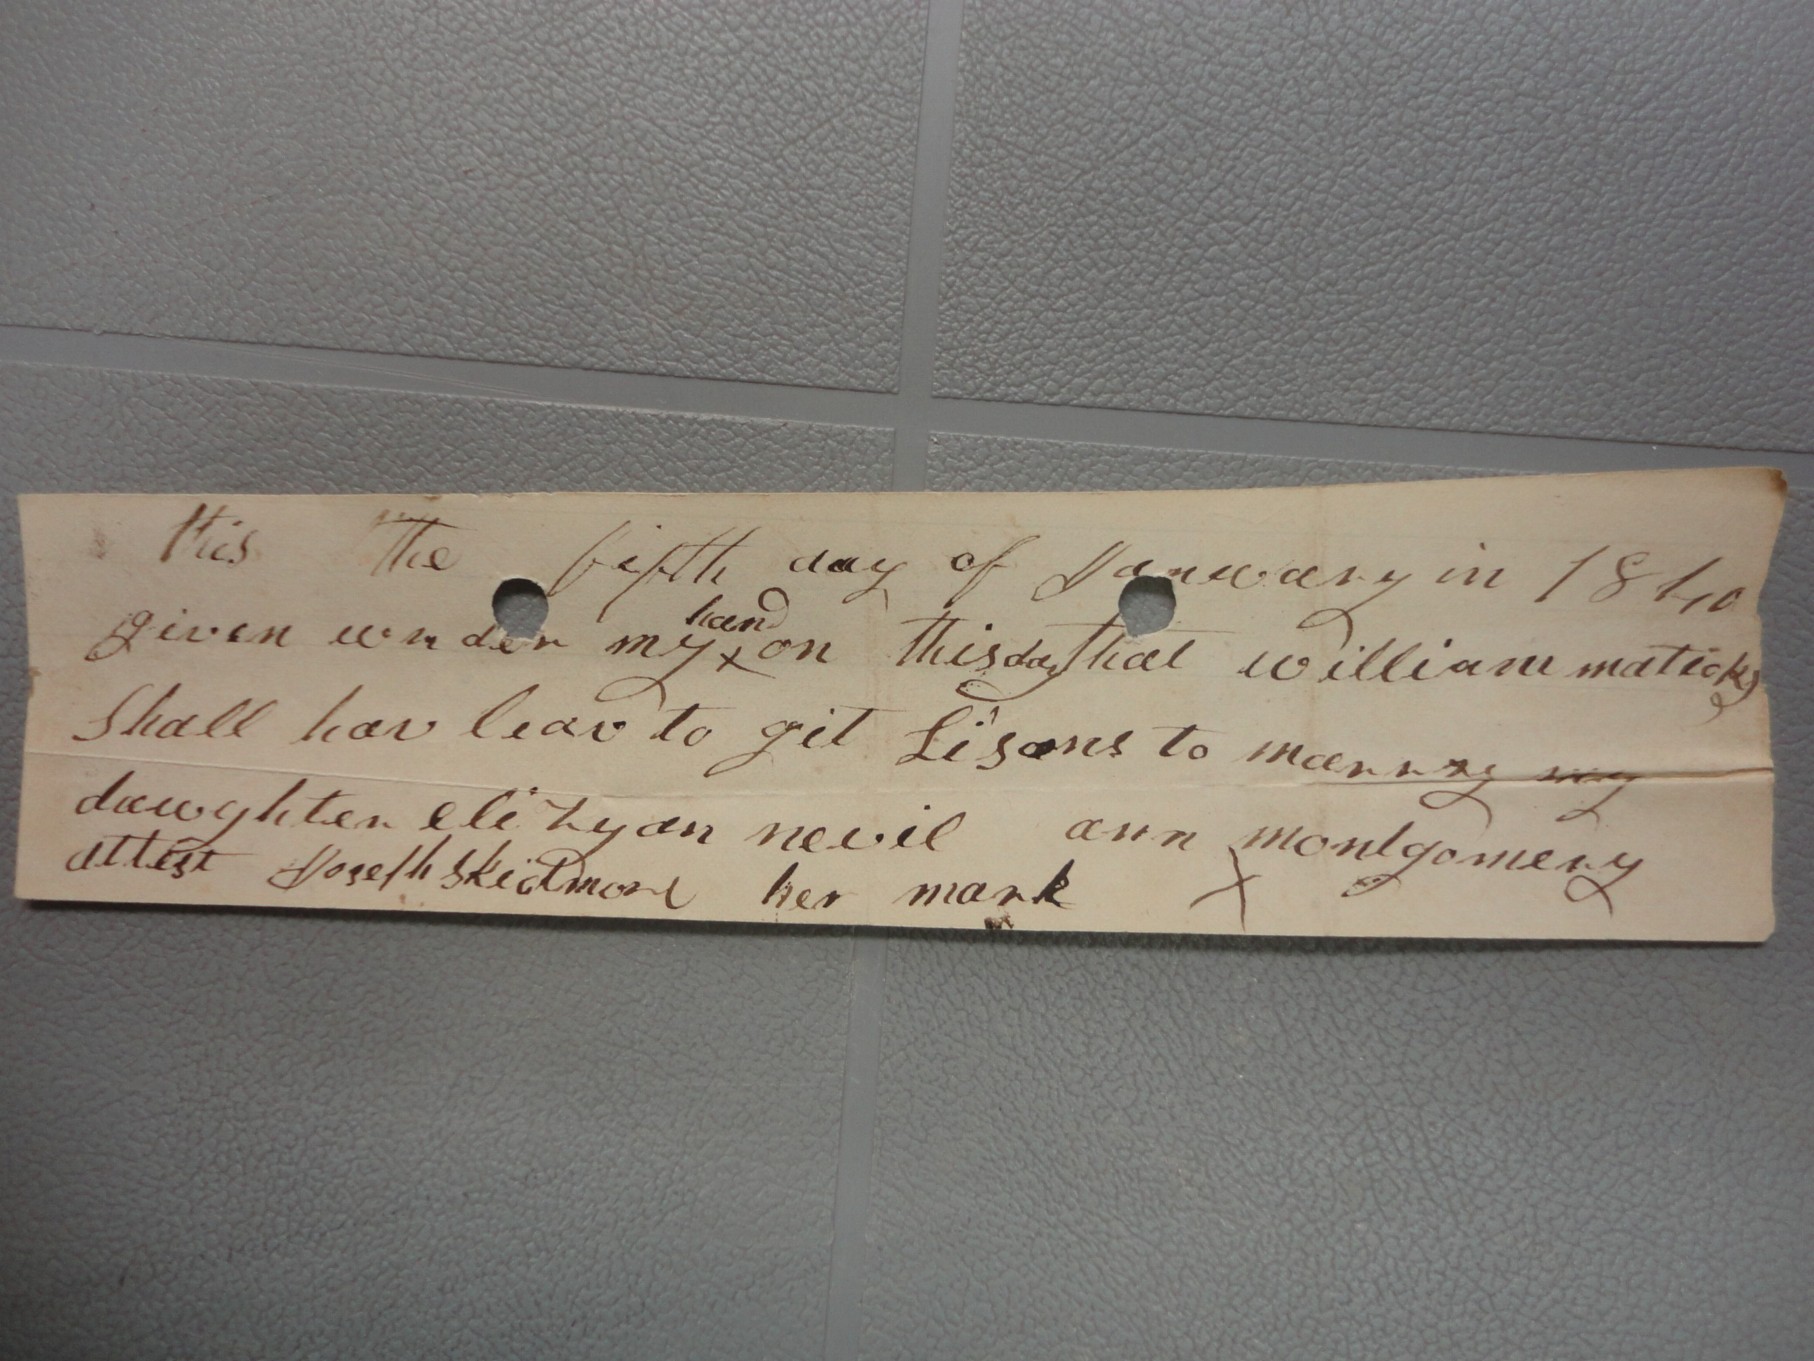 this the fifth day of January in 1840
given wnder my hand x on this day that william maticks
Shall hav leav to git Lisans to marry my
dawghter elizyan nevil ann montgomery
attest Joseph Skidmore her mark X